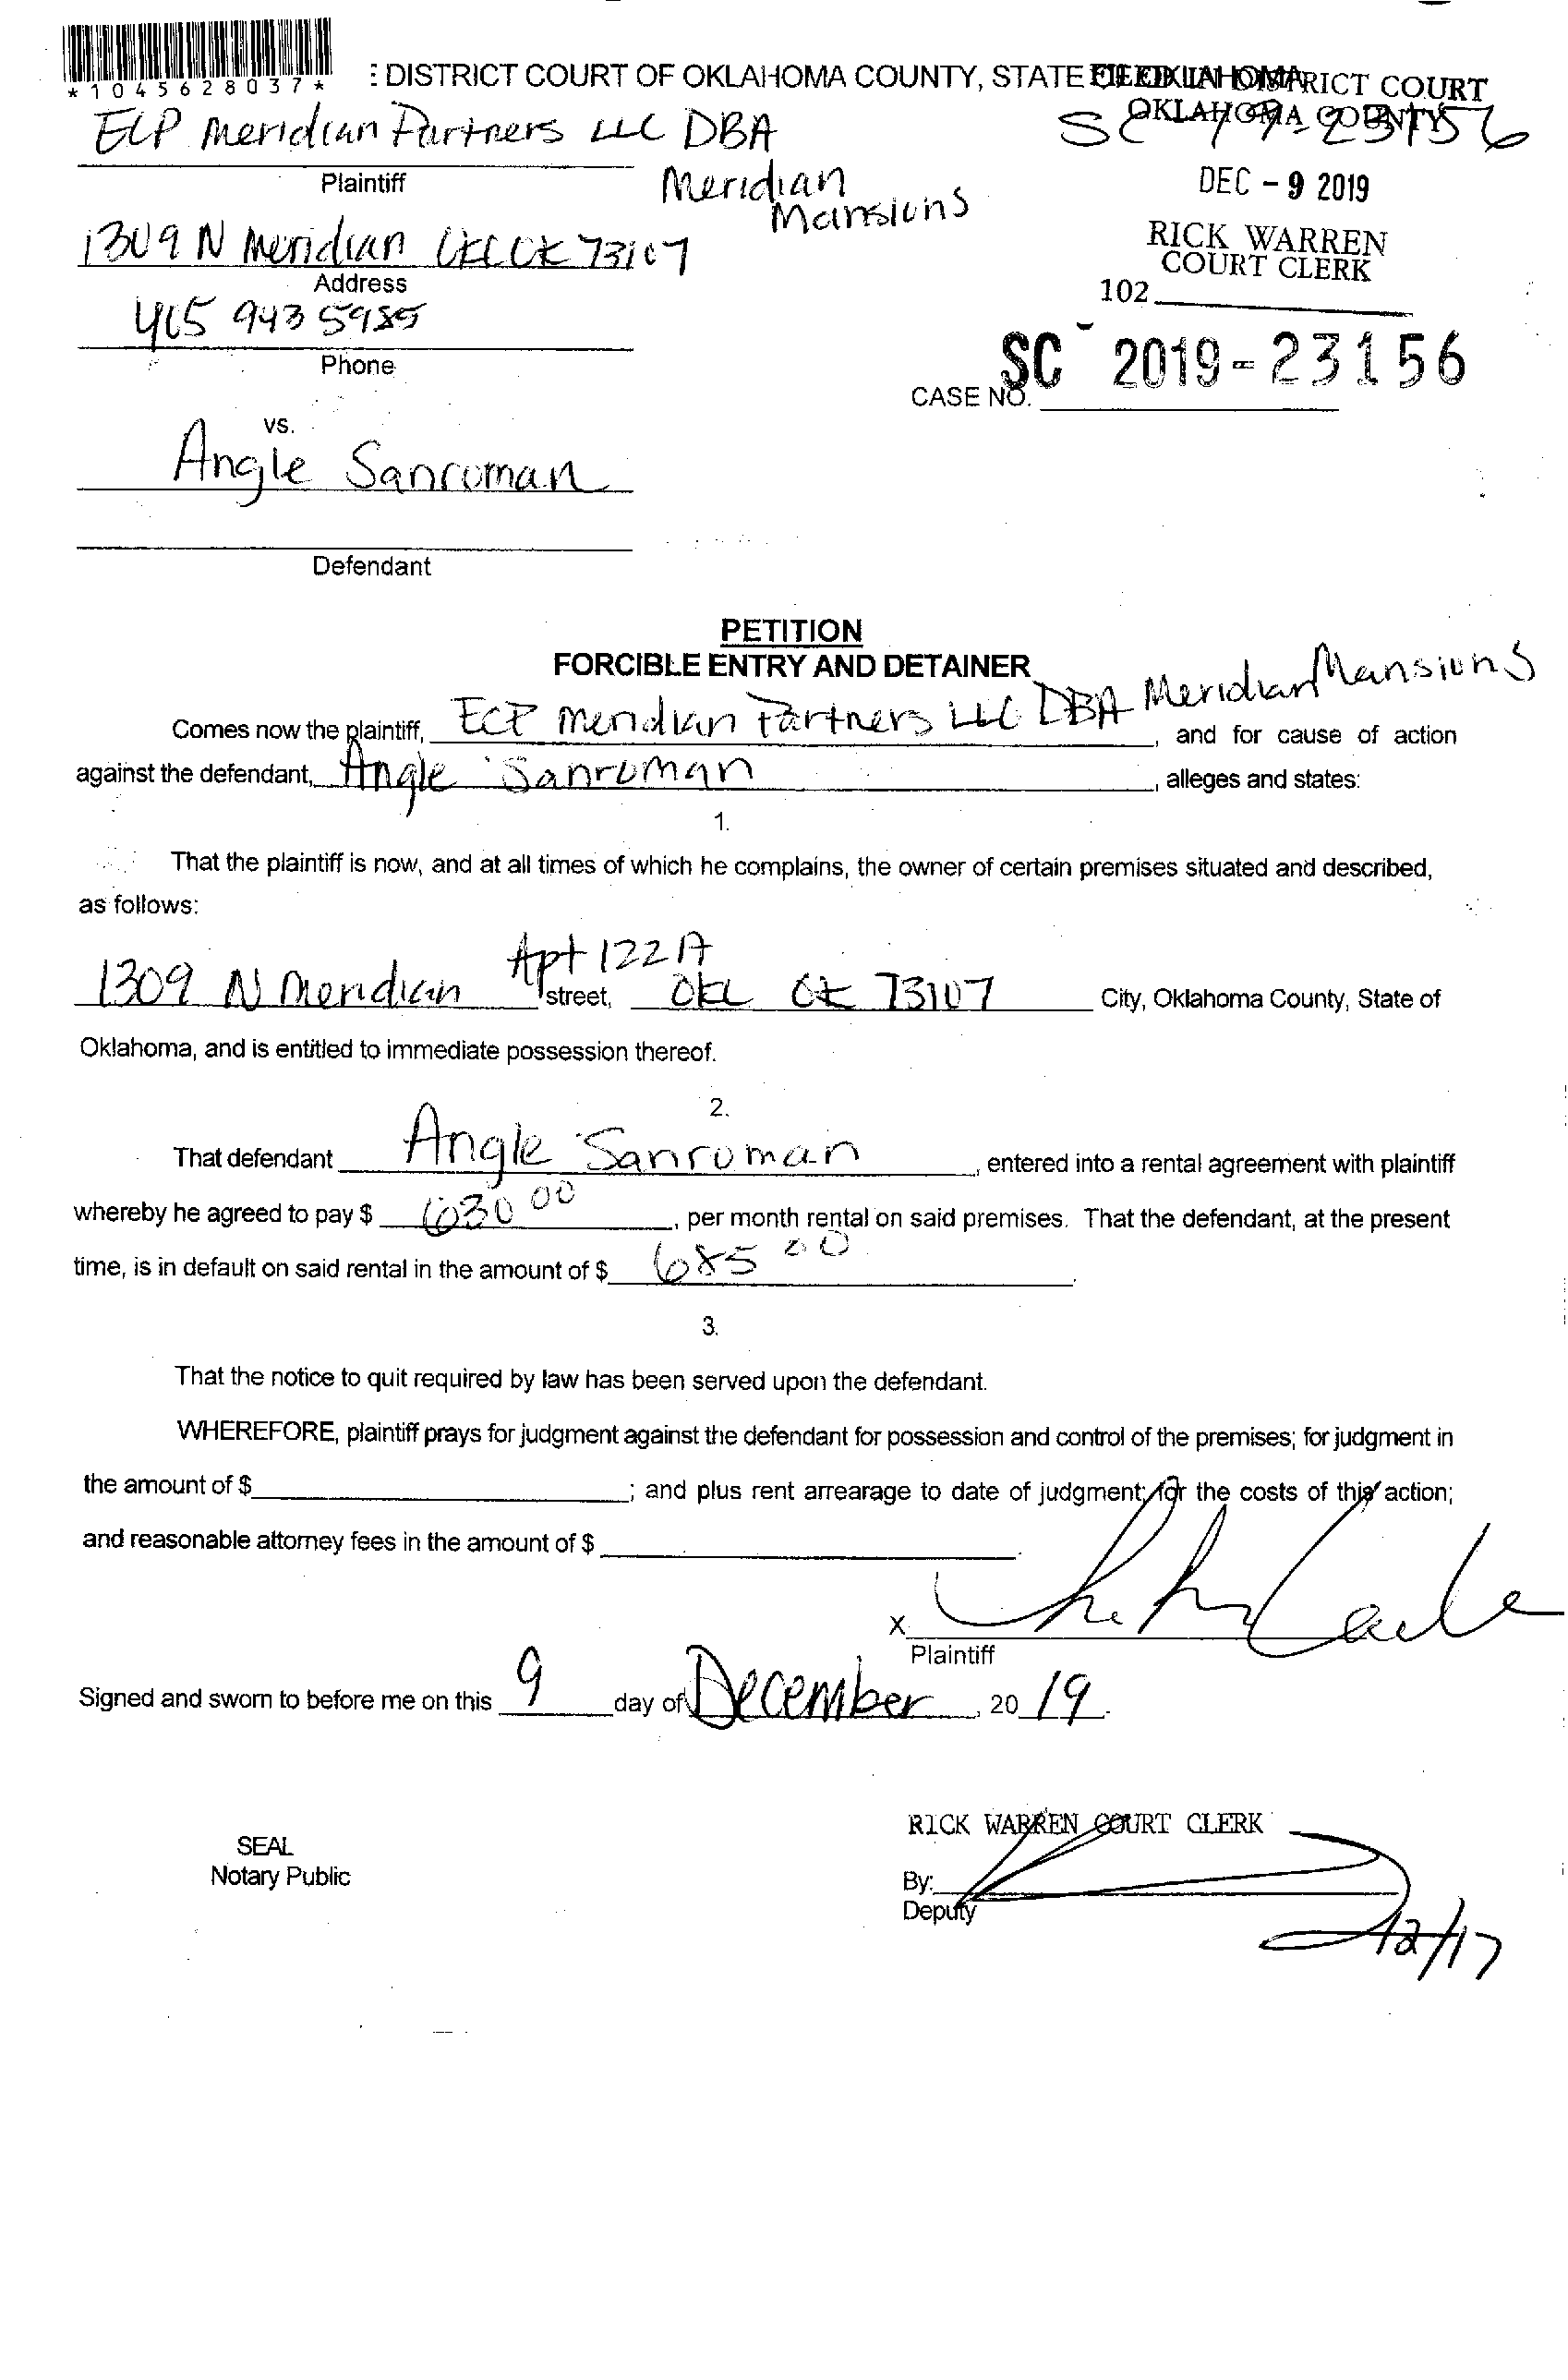 *1045628037*
: DISTRICT COURT OF OKLAHOMA COUNTY, STATE OF OKLAHOMA
FILED IN DISTRICT COURT
OKLAHOMA COUNTY
ECP Meridian Partners LLC DBA
SC 19-23156
Plaintiff
Meridian
Mansions
DEC - 9 2019
1309 N Meridian OKC OK 73107
RICK WARREN
COURT CLERK
Address
102
405 943 5985
Phone
SC 2019-23156
CASE NO.
vs.
Angle Sanroman
Defendant
PETITION
FORCIBLE ENTRY AND DETAINER
Comes now the plaintiff, ECP Meridian Partners LLC DBA Meridian Mansions, and for cause of action
against the defendant, Angle Sanroman, alleges and states:
1.
That the plaintiff is now, and at all times of which he complains, the owner of certain premises situated and described,
as follows:
Apt 122A
1309 N Meridian street, OKC OK 73107 City, Oklahoma County, State of
Oklahoma, and is entitled to immediate possession thereof.
2.
That defendant Angle Sanroman, entered into a rental agreement with plaintiff
whereby he agreed to pay $ 630 00, per month rental on said premises. That the defendant, at the present
time, is in default on said rental in the amount of $ 685 00.
3.
That the notice to quit required by law has been served upon the defendant.
WHEREFORE, plaintiff prays for judgment against the defendant for possession and control of the premises; for judgment in
the amount of $ ; and plus rent arrearage to date of judgment; for the costs of this action;
and reasonable attorney fees in the amount of $ .
X
Plaintiff
Signed and sworn to before me on this 9 day of December, 20 19.
RICK WARREN COURT CLERK
SEAL
Notary Public
By:
Deputy
12/17